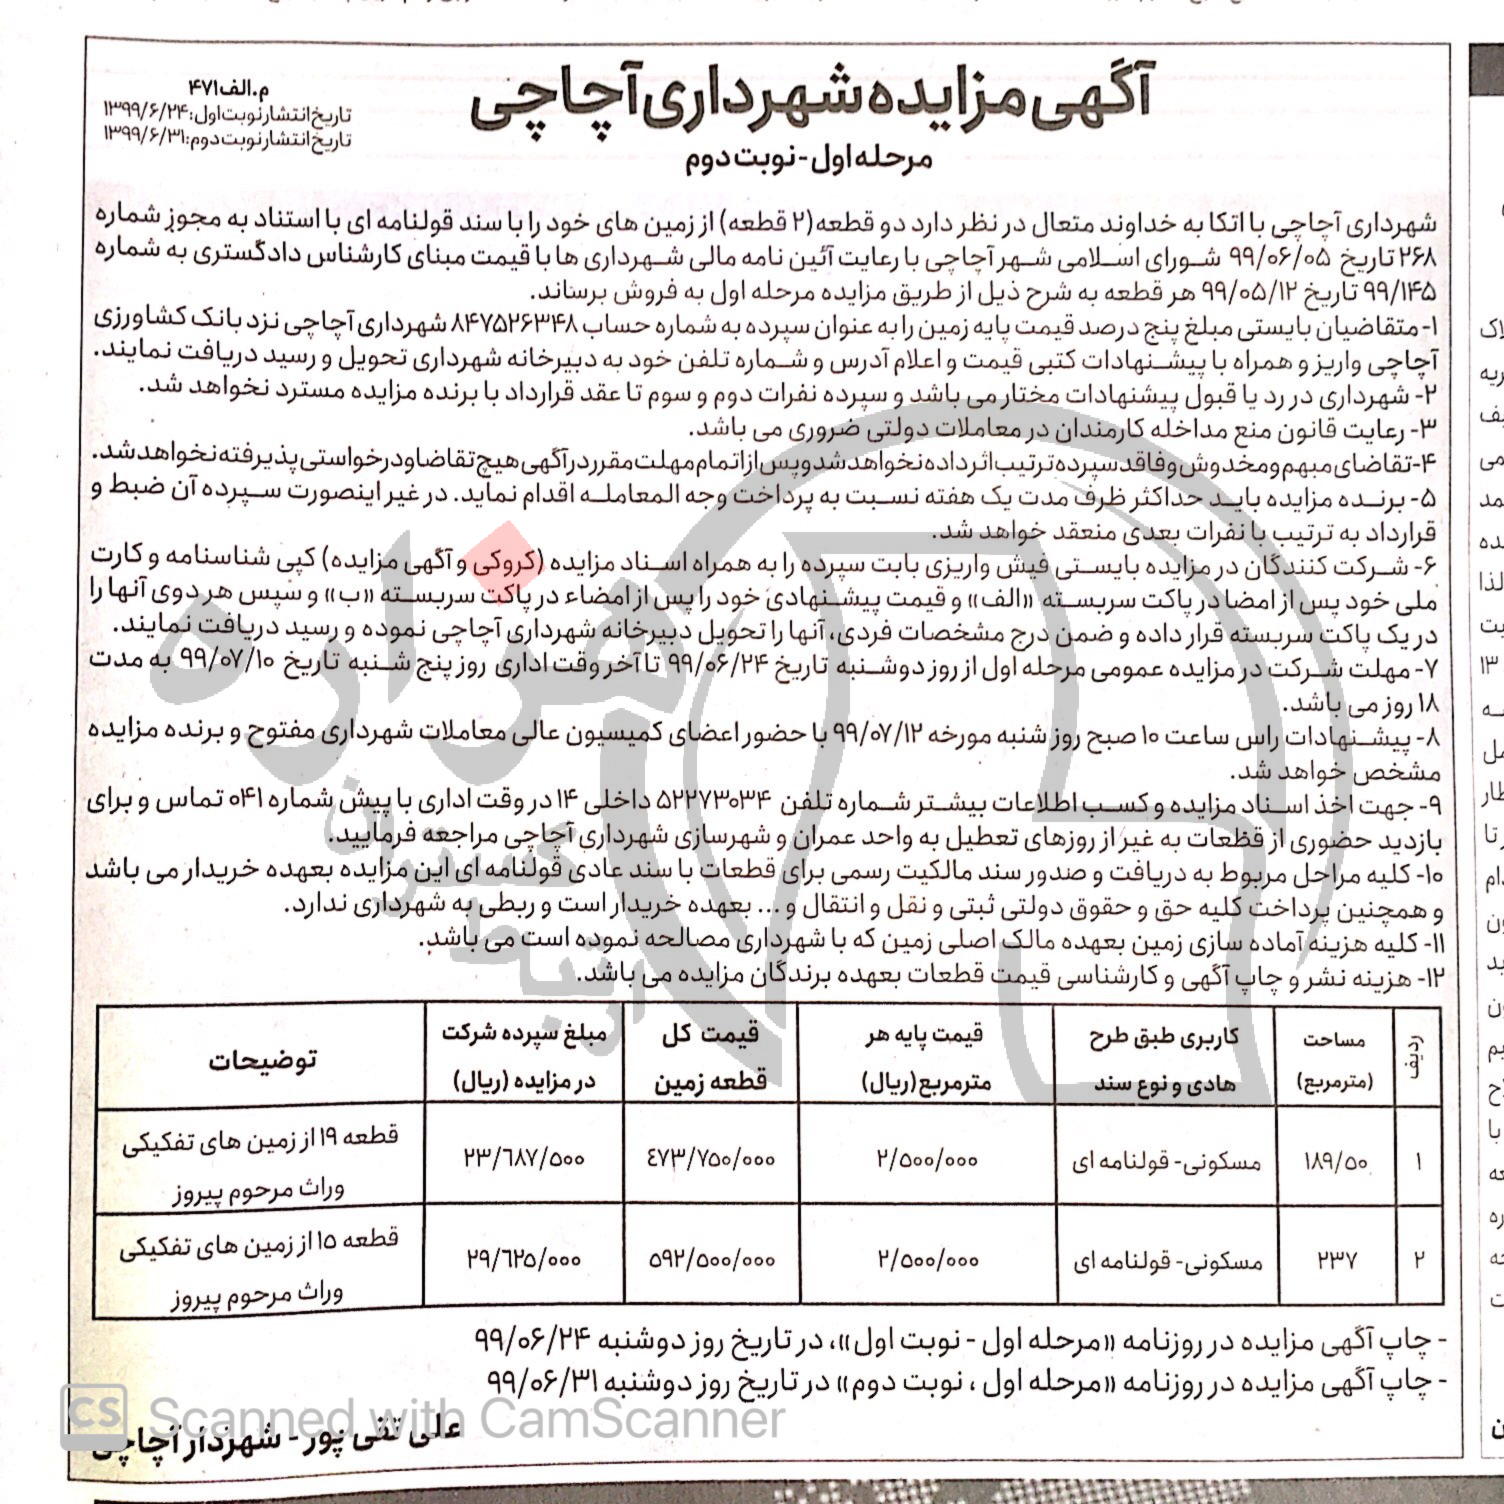 آگهی مزایده شهرداری آچاچی
مرحله اول - نوبت دوم
م.الف ۴۷۱
تاریخ انتشار نوبت اول: ۱۳۹۹/۶/۲۴
تاریخ انتشار نوبت دوم: ۱۳۹۹/۶/۳۱
شهرداری آچاچی با اتکا به خداوند متعال در نظر دارد دو قطعه (۲ قطعه) از زمین های خود را با سند قولنامه ای با استناد به مجوز شماره
۲۶۸ تاریخ ۹۹/۰۶/۰۵ شورای اسلامی شهر آچاچی با رعایت آئین نامه مالی شهرداری ها با قیمت مبنای کارشناس دادگستری به شماره
۹۹/۱۴۵ تاریخ ۹۹/۰۵/۱۲ هر قطعه به شرح ذیل از طریق مزایده مرحله اول به فروش برساند.
۱- متقاضیان بایستی مبلغ پنج درصد قیمت پایه زمین را به عنوان سپرده به شماره حساب ۸۴۷۵۲۶۳۴۸ شهرداری آچاچی نزد بانک کشاورزی
آچاچی واریز و همراه با پیشنهادات کتبی قیمت و اعلام آدرس و شماره تلفن خود به دبیرخانه شهرداری تحویل و رسید دریافت نمایند.
۲- شهرداری در رد یا قبول پیشنهادات مختار می باشد و سپرده نفرات دوم و سوم تا عقد قرارداد با برنده مزایده مسترد نخواهد شد.
۳- رعایت قانون منع مداخله کارمندان در معاملات دولتی ضروری می باشد.
۴- تقاضای مبهم و مخدوش و فاقد سپرده ترتیب اثر داده نخواهد شد و پس از اتمام مهلت مقرر در آگهی هیچ تقاضا و درخواستی پذیرفته نخواهد شد.
۵- برنده مزایده باید حداکثر ظرف مدت یک هفته نسبت به پرداخت وجه المعامله اقدام نماید. در غیر اینصورت سپرده آن ضبط و
قرارداد به ترتیب با نفرات بعدی منعقد خواهد شد.
۶- شرکت کنندگان در مزایده بایستی فیش واریزی بابت سپرده را به همراه اسناد مزایده (کروکی و آگهی مزایده) کپی شناسنامه و کارت
ملی خود پس از امضا در پاکت سربسته «الف» و قیمت پیشنهادی خود را پس از امضاء در پاکت سربسته «ب» و سپس هر دوی آنها را
در یک پاکت سربسته قرار داده و ضمن درج مشخصات فردی، آنها را تحویل دبیرخانه شهرداری آچاچی نموده و رسید دریافت نمایند.
۷- مهلت شرکت در مزایده عمومی مرحله اول از روز دوشنبه تاریخ ۹۹/۰۶/۲۴ تا آخر وقت اداری روز پنج شنبه تاریخ ۹۹/۰۷/۱۰ به مدت
۱۸ روز می باشد.
۸- پیشنهادات راس ساعت ۱۰ صبح روز شنبه مورخه ۹۹/۰۷/۱۲ با حضور اعضای کمیسیون عالی معاملات شهرداری مفتوح و برنده مزایده
مشخص خواهد شد.
۹- جهت اخذ اسناد مزایده و کسب اطلاعات بیشتر شماره تلفن ۵۲۲۷۳۰۳۴ داخلی ۱۴ در وقت اداری با پیش شماره ۰۴۱ تماس و برای
بازدید حضوری از قطعات به غیر از روزهای تعطیل به واحد عمران و شهرسازی شهرداری آچاچی مراجعه فرمایید.
۱۰- کلیه مراحل مربوط به دریافت و صدور سند مالکیت رسمی برای قطعات با سند عادی قولنامه ای این مزایده بعهده خریدار می باشد
و همچنین پرداخت کلیه حق و حقوق دولتی ثبتی و نقل و انتقال و ... بعهده خریدار است و ربطی به شهرداری ندارد.
۱۱- کلیه هزینه آماده سازی زمین بعهده مالک اصلی زمین که با شهرداری مصالحه نموده است می باشد.
۱۲- هزینه نشر و چاپ آگهی و کارشناسی قیمت قطعات بعهده برندگان مزایده می باشد.
ردیف مساحت (مترمربع) کاربری طبق طرح هادی و نوع سند قیمت پایه هر مترمربع (ریال) قیمت کل قطعه زمین مبلغ سپرده شرکت در مزایده (ریال) توضیحات
۱ ۱۸۹/۵۰ مسکونی - قولنامه ای ۲/۵۰۰/۰۰۰ ٤٧٣/٧٥٠/٠٠٠ ٢٣/٦٨٧/٥٠٠ قطعه ۱۹ از زمین های تفکیکی وراث مرحوم پیروز
۲ ۲۳۷ مسکونی - قولنامه ای ۲/۵۰۰/۰۰۰ ۵۹۲/۵۰۰/۰۰۰ ٢٩/٦٢٥/٠٠٠ قطعه ۱۵ از زمین های تفکیکی وراث مرحوم پیروز
- چاپ آگهی مزایده در روزنامه «مرحله اول - نوبت اول»، در تاریخ روز دوشنبه ۹۹/۰۶/۲۴
- چاپ آگهی مزایده در روزنامه «مرحله اول، نوبت دوم» در تاریخ روز دوشنبه ۹۹/۰۶/۳۱
علی تقی پور - شهردار آچاچی
CS Scanned with CamScanner
هزاره
گسترش
ارتباط